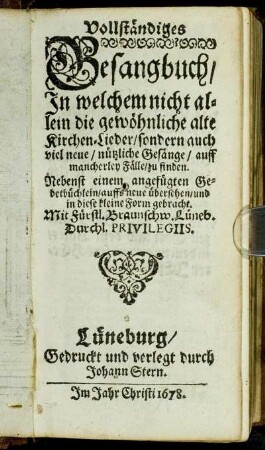 Vollständiges
Gesangbuch/
In welchem nicht al-
lein die gewöhnliche alte
Kirchen-Lieder/sondern auch
viel neue/nützliche Gesänge/auff
mancherley Fälle/zu finden.
Nebenst einem angefügten Ge-
betbüchlein/auffs neue übersehen/und
in diese kleine Form gebracht.
Mit Fürstl. Braunschw. Lüneb.
Durchl. PRIVILEGIIS.
Lüneburg/
Gedruckt und verlegt durch
Johann Stern.
Im Jahr Christi 1678.